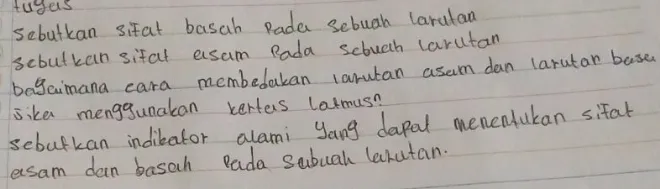 tugas
sebutkan sifat basah pada sebuah larutan
sebutkan sifat asam pada sebuah larutan
bagaimana cara membedakan larutan asam dan larutan basa
jika menggunakan kertas latmus?
sebutkan indikator alami yang dapat menentukan sifat
asam dan basah pada sebuah larutan.